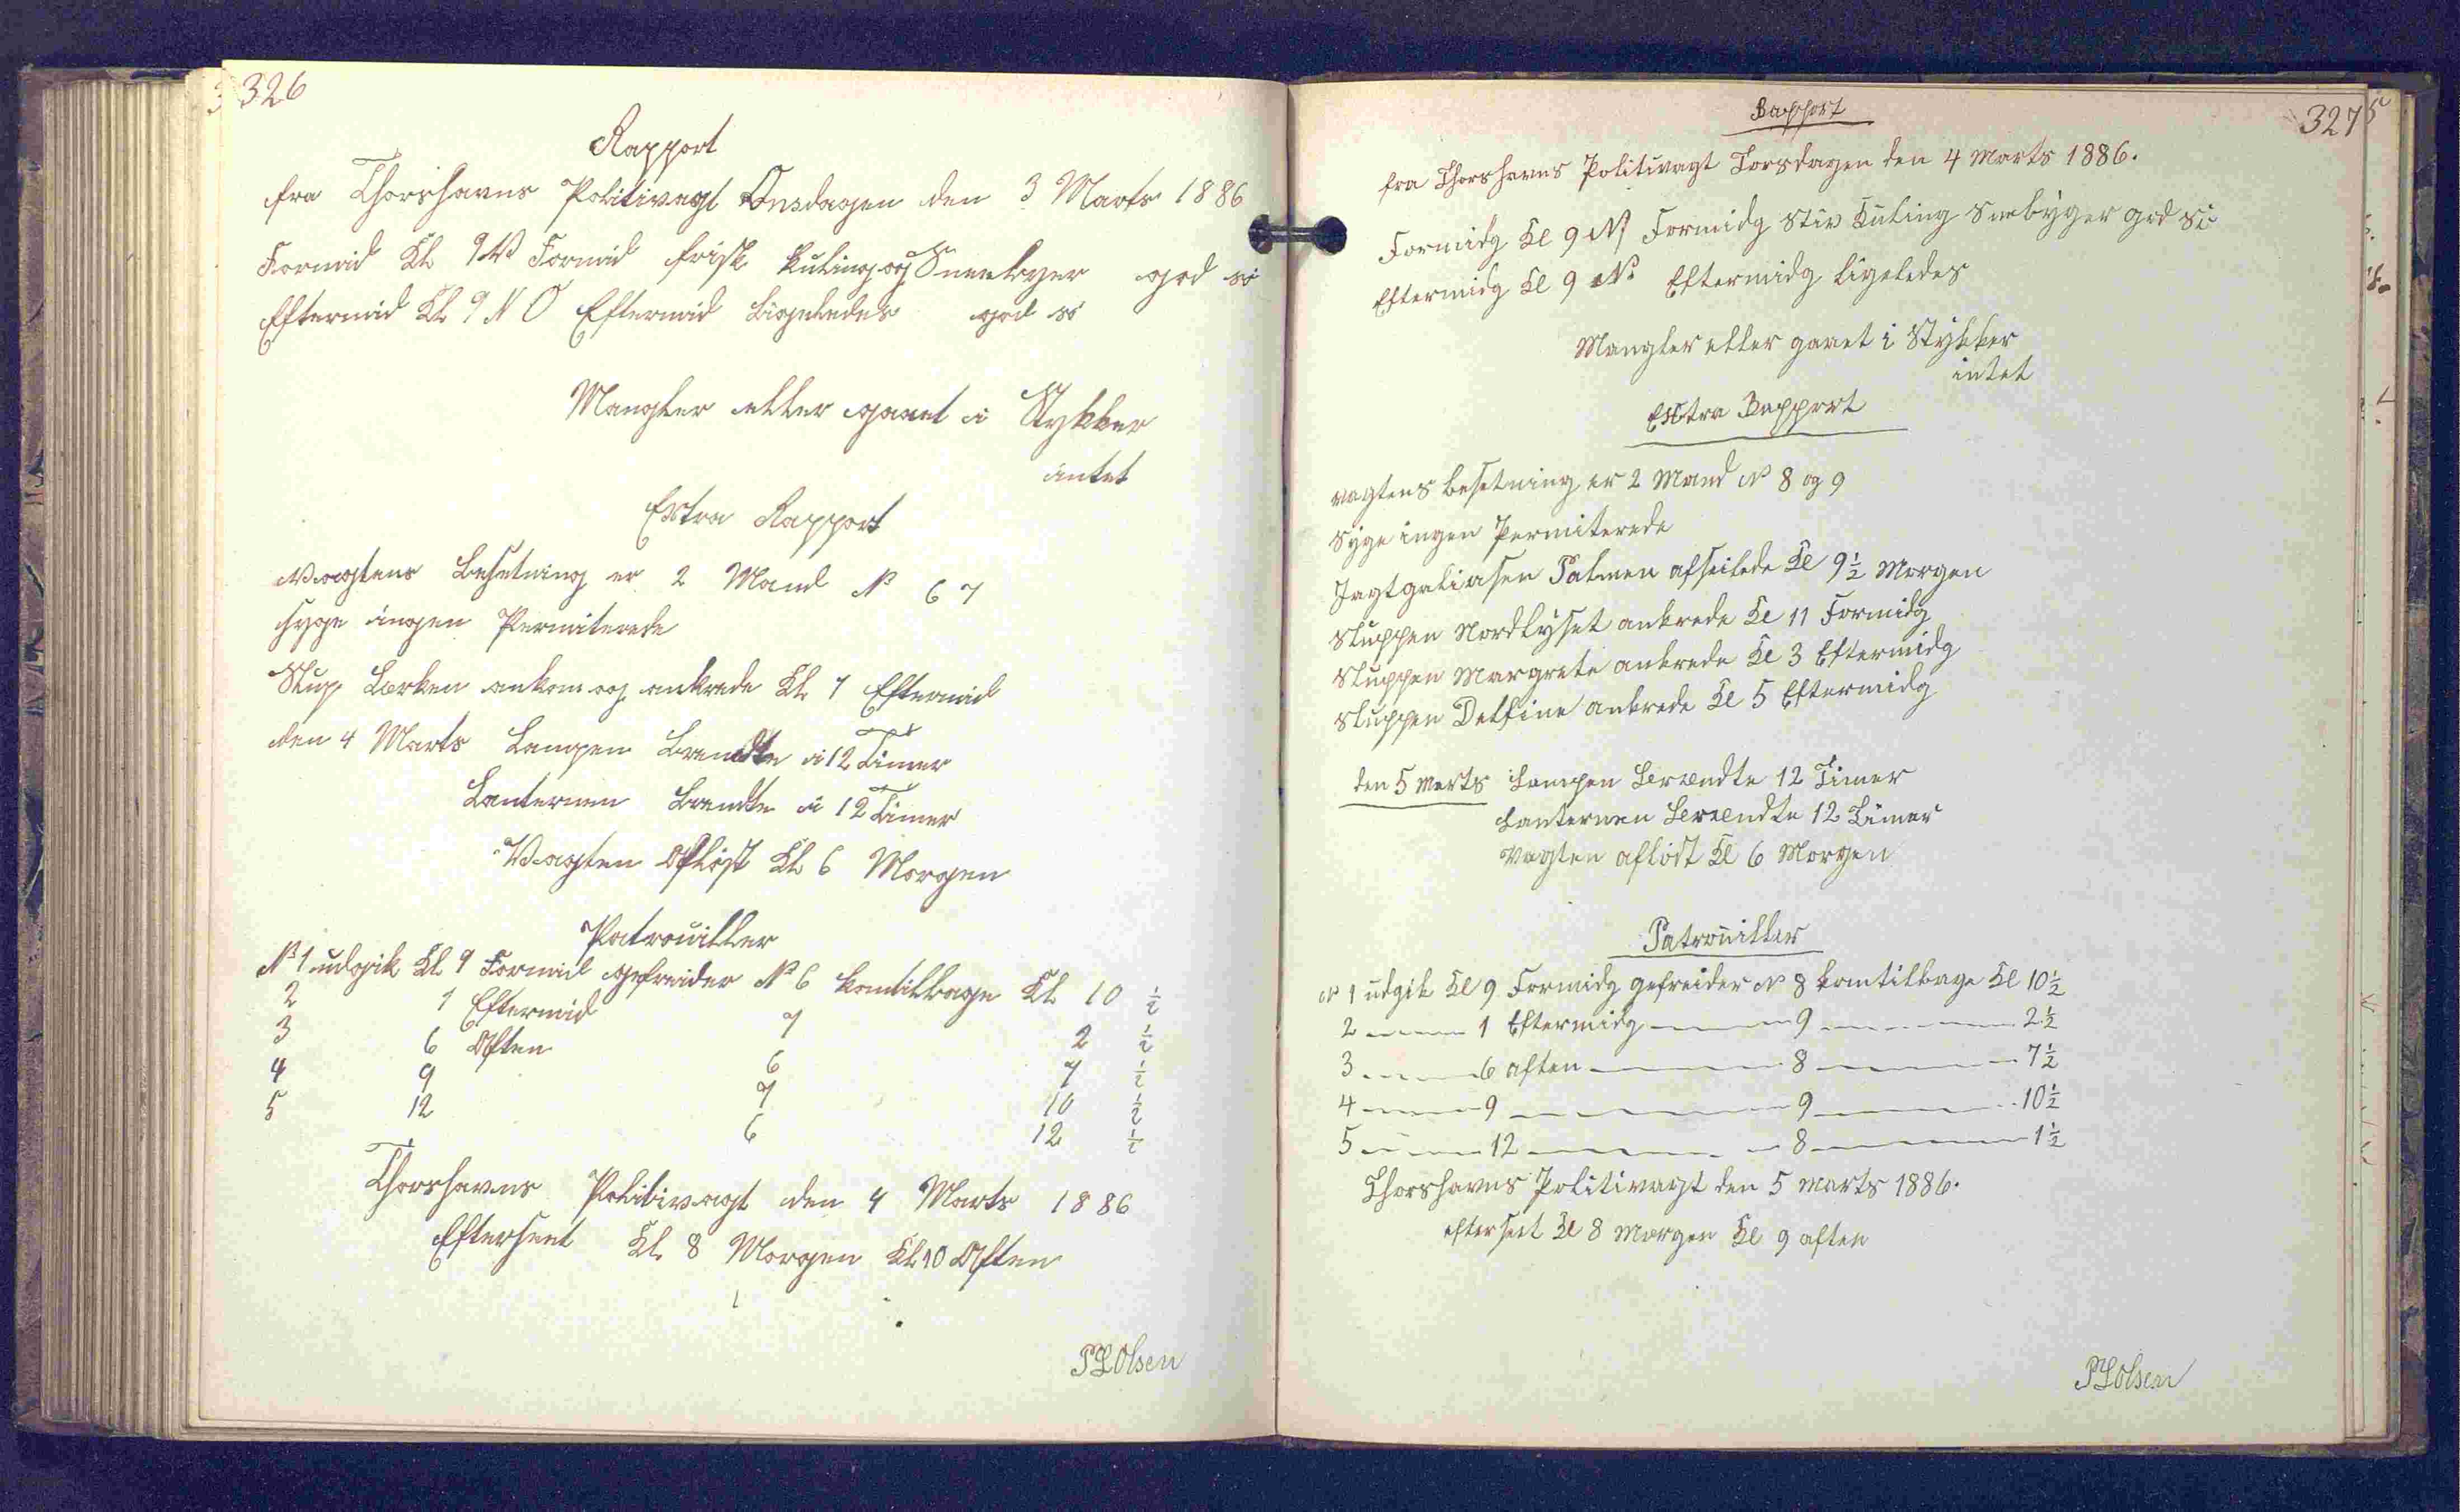 326
Rapport
fra Thorshavns Politivagt Onsdagen den 3 Marts 1886
Formid Kl 9 V Formid frisk kuling og Sneebyer god si
Eftermid Kl 9 N O Eftermid Ligeledes god si
Mangler eller gaaet i Stykker
intet
Extra Rapport
Vagtens Besetning er 2 Mand No 6 7
syge ingen Permiterede
Slup Lerken ankom og ankrede Kl 7 Eftermid
den 4 Marts Lampen Brendte i 12 Timer
Lanternen Brendte i 12 Timer
Vagten Afløst Kl 6 Morgen
Patrouiller
No 1 udgik Kl 9 Formid gefreider No 6 komtilbage Kl 10 ½
2 1 Eftermid 7 2 ½
3 6 Aften 6 7 ½
4 9 7 10 ½
5 12 6 12 ½
Thorshavns Politivagt den 4 Marts 1886
Efterseet Kl 8 Morgen Kl 10 Aften
P L Olsen
327
Rapport
fra Thorshavns Politivagt Torsdagen den 4 Marts 1886.
Formidg Kl 9 N Formidg Stiv Kuling Snebyger god Si
Eftermidg Kl 9 N. Eftermidg ligeledes
Mangler eller gaaet i Stykker
intet
Extra Rapport
vagtens besetning er 2 Mand No 8 og 9
syge ingen Permiterede
Jagtgaliasen Palmen afseilede Kl 9½ Morgen
Sluppen Nordlyset ankrede Kl 11 Formidg
Sluppen Margrete ankrede Kl 3 Eftermidg
Sluppen Delfine ankrede Kl 5 Eftermidg
den 5 Marts Lampen Brændte 12 Timer
Lanternen Brændte 12 Timer
Vagten afløst Kl 6 Morgen
Patrouiller
No 1 udgik Kl 9 Formidg gefreider No 8 komtilbage Kl 10½
2 1 Eftermidg 9 2½
3 6 aften 8 7½
4 9 9 10½
5 12 8 1½
Thorshavns Politivagt den 5 Marts 1886.
efterseet Kl 8 Morgen Kl 9 aften
P L Olsen